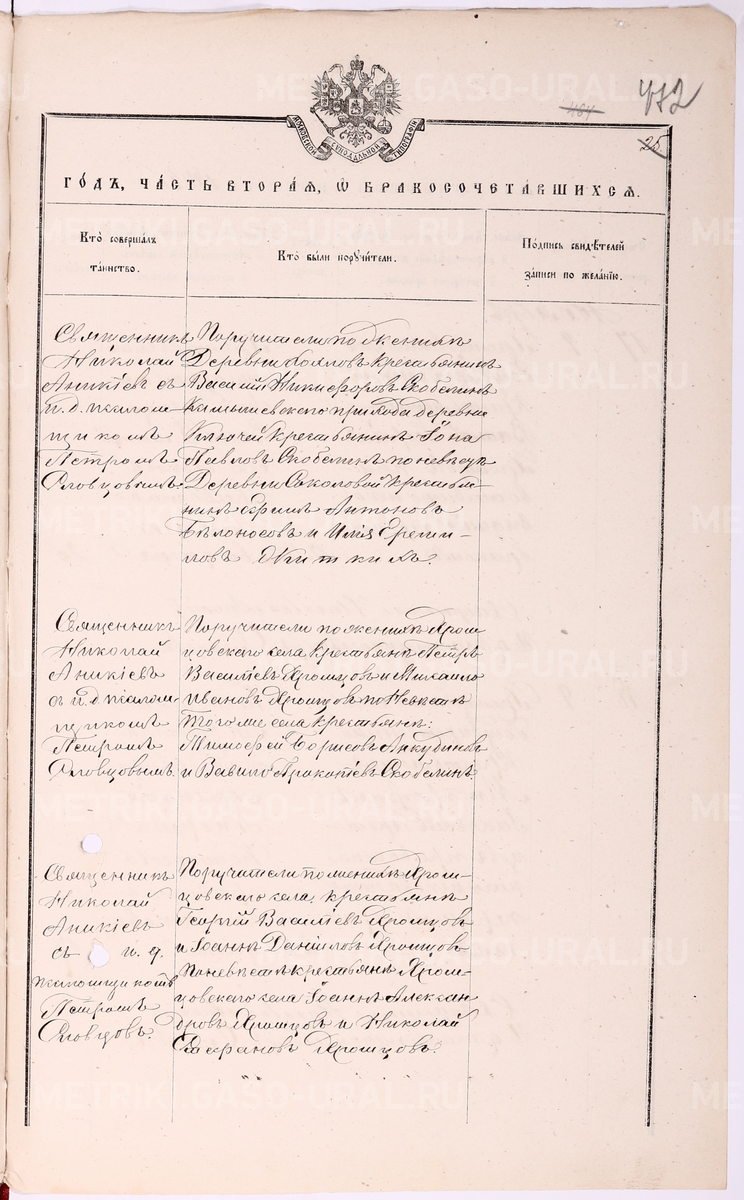 472
464
25
МОСКОВСКОЙ СѴНОДАЛЬНОЙ ТИПОГРАФІИ
ГО́ДЪ, ЧА́СТЬ ВТОРА́Я, Ѡ БРАКОСОЧЕТА́ВШИХСЯ.
Кто̀ соверша́лъ
та́инство.
Кто̀ бы́ли поручи́тели.
По́дпись свидѣ́телей
за́писи по жела́нію.
Священникъ
Николай
Аникіевъ съ
и. д. псалом-
щикомъ
Петромъ
Словцовымъ.
Поручители по женихѣ
Деревни крестьянинъ
Василій Никифоровъ Скобелинъ
Камышевского прихода деревни
Ключей крестьянинъ Іона
Павловъ Скобелинъ по невѣстѣ
Деревни Соколовой крестья-
нинъ Антоновъ
Бѣлоносовъ и Илія Ереми-
ловъ
Священникъ
Николай
Аникіевъ
съ и. д псалом-
щикомъ
Петромъ
Словцовымъ.
Поручители по женихѣ Яром-
цовскаго села крестьяне Петръ
Василіевъ Яромцовъ и Михаилъ
Ивановъ Яромцовъ по Невѣстѣ
Того же села крестьяне:
Тимофей Борисовъ Якубинъ
и Вавило Прокопіевъ Скобелинъ
Священникъ
Николай
Аникіевъ
съ и. д.
псаломщикомъ
Петромъ
Словцовъ.
Поручители по женихѣ Яром-
цовскаго села, крестьяне
Георгій Василіевъ Яромцовъ
и Іоаннъ Даніиловъ Яромцовъ
По невѣстѣ крестьяне Яром-
цовскаго села Іоаннъ Алексан
дровъ Яромцовъ и Николай
Яромцовъ.
METRIKI.GASO-URAL.RU